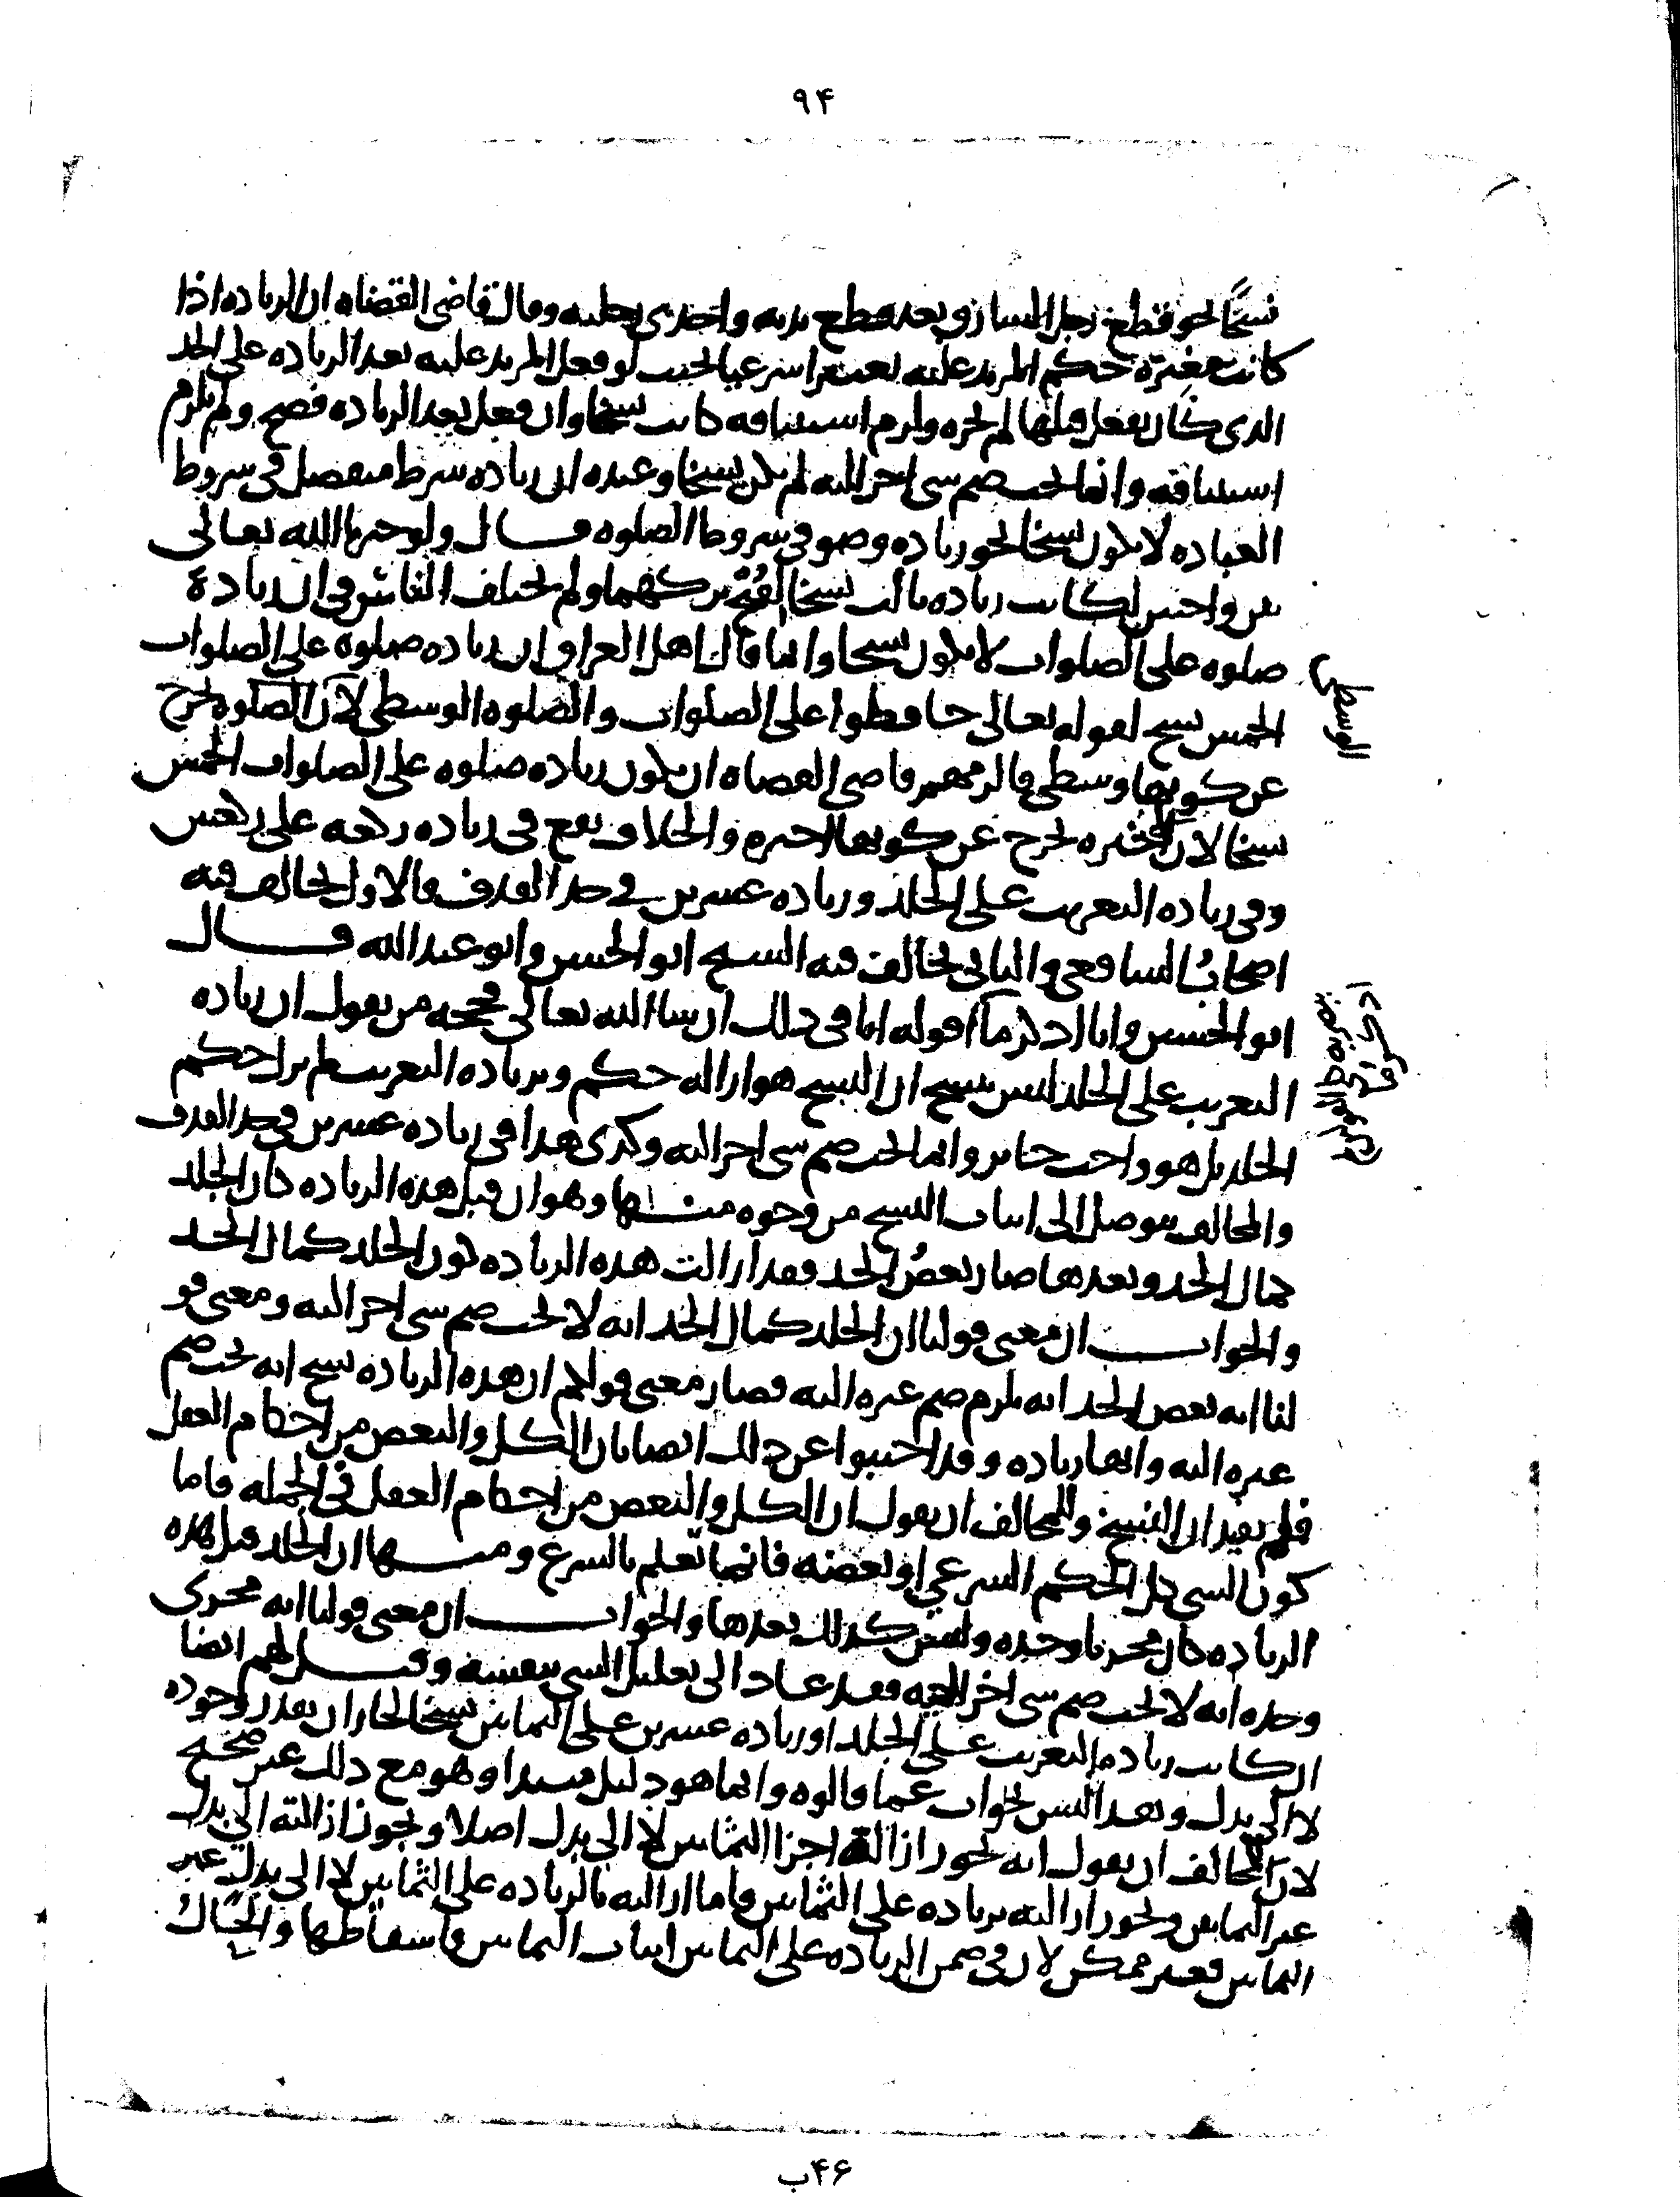 ٩۴
نسخًا نحو قطع رجل السارق بعد قطع يديه واحدى رجليه وقال قاضي القضاه ان الزياده اذا
كانت مغيّرة حكم المزيد عليه تغييرا شرعيا بحيث لو فعل المزيد عليه بعد الزياده على الحد
الذي كان يفعل قبلها لم يجزه ولزم استينافه كانت نسخا وان فعل بعد الزياده فصح ولم يلزم
استينافه وانما يجب ضم شي اخر اليه لم يكن نسخا وعنده ان زياده شرط منفصل في شروط
العباده لا يكون نسخا نحو زياده وضو في شروط الصلوه قال ولو خيرنا الله تعالى
بين واجبين لكانت زياده ثالث نسخا لقُبْح تركهما ولم يختلف الناس في ان زيادة
صلوه على الصلوات لا يكون نسخا وانما قال اهل العراق ان زياده صلوه على الصلوات
الخمس نسخ لقوله تعالى حافظوا على الصلوات والصلوه الوسطى لان الصلوه تخرج
الوسطى
عن كونها وسطى فالزمهم قاضي القضاه ان يكون زياده صلوه على الصلوات الخمس
نسخا لان الاخيره تخرج عن كونها اخيره والخلاف يقع في زياده ركعه على ركعتين
وفي زياده التغريب على الجلد وزياده عشرين في حد القذف فالاول يخالف فيه
اصحابُ الشافعي والثاني يخالف فيه الشيخ ابو الحسن وابو عبد الله قال
ابو الحسين وانا اذكر ما اقوله انا في ذلك ان شا الله تعالى فحجه من يقول ان زياده
التغريب على الجلد ليس بنسخ ان النسخ هو ازاله حكم وبزياده التغريب لم يزل حكم
الجلد بل هو واجب جايز وانما يجب ضم شي اخر اليه وكذى هذا في زياده عشرين في حد القذف
والمخالف يتوصل الى اثبات النسخ من وجوه منها وهو ان قبل هذه الزياده كان الجلد
كمال الحد وبعدها صار بعضُ الحد فقد ازالت هذه الزياده كون الجلد كمال الحد
والجواب ان معنى قولنا ان الجلد كمال الحد انه لا يجب ضم شي اخر اليه ومعنى قو
لنا انه بعض الحد انه يلزم ضم غيره اليه فصار معنى قولكم ان هذه الزياده نسخ انه يجب ضم
غيره اليه وانها زياده وقد اجيبوا عن ذلك ايضا بان الكل والبعض من احكام العقل
فلم يفيد ان النسخ وللمخالف ان يقول ان الكل والبعض من احكام العقل في الجمله فاما
كون الشي كل الحكم الشرعي او بعضه فانما تعلم بالشرع ومنها ان الجلد قبل هذه
الزياده كان مجزيا وحده وليس كذلك بعدها والجواب ان معنى قولنا انه مجزى
وحده انه لا يجب ضم شي اخر اليه فقد عاد الى تعليل الشي بنفسه وقيل لهم ايضا
ان كانت زياده التغريب على الجلد او زياده عشرين على الثمانين نسخا لجاز ان تقدر وجوده
لا الى بدل وبعد اليس بجواب عما قالوه وانما هو دليل مبتدا وهو مع ذلك غير صحيح
لان للمخالف ان يقول انه يجوز ازالة اجزا الثمانين لا الى بدل اصلا ويجوز ازالته الى بدل
غير الثمانين ويجوز ازالته بزياده على الثمانين فاما ازالته بالزياده على الثمانين لا الى بدل غير
الثمانين فغير ممكن لان في ضمن الزياده على الثمانين اثبات الثمانين واسقاطها والحَالُ
۴۶ب